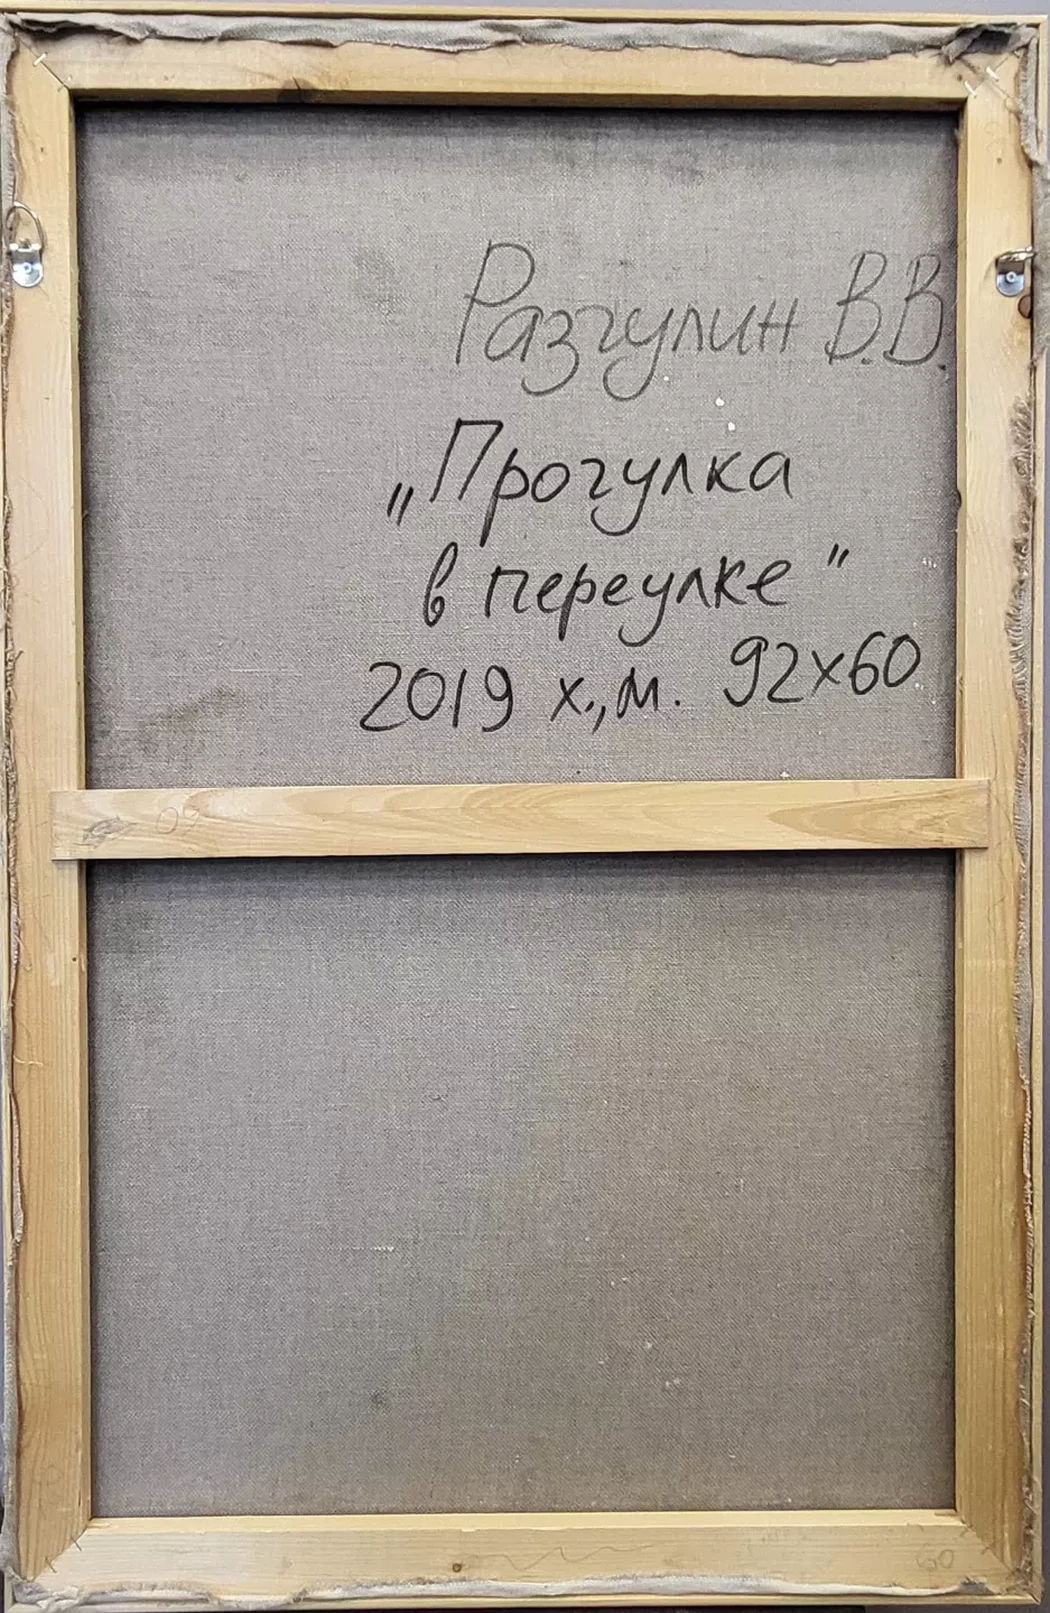 Разгулин В.В.
„Прогулка
в переулке"
2019 х.,м. 92х60
60
60